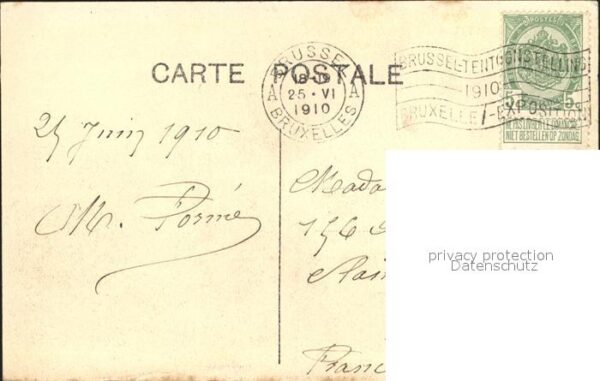 CARTE POSTALE
BRUSSEL
18-19
A 25·VI A
1910
BRUXELLES
BRUSSEL-TENTOONSTELLING
1910
BRUXELLES-EXPOSITION
POSTES
5 5c
NE PAS LIVRER LE DIMANCHE
NIET BESTELLEN OP ZONDAG
25 Juin 1910
M.
Mada
156
privacy protection
Datenschutz